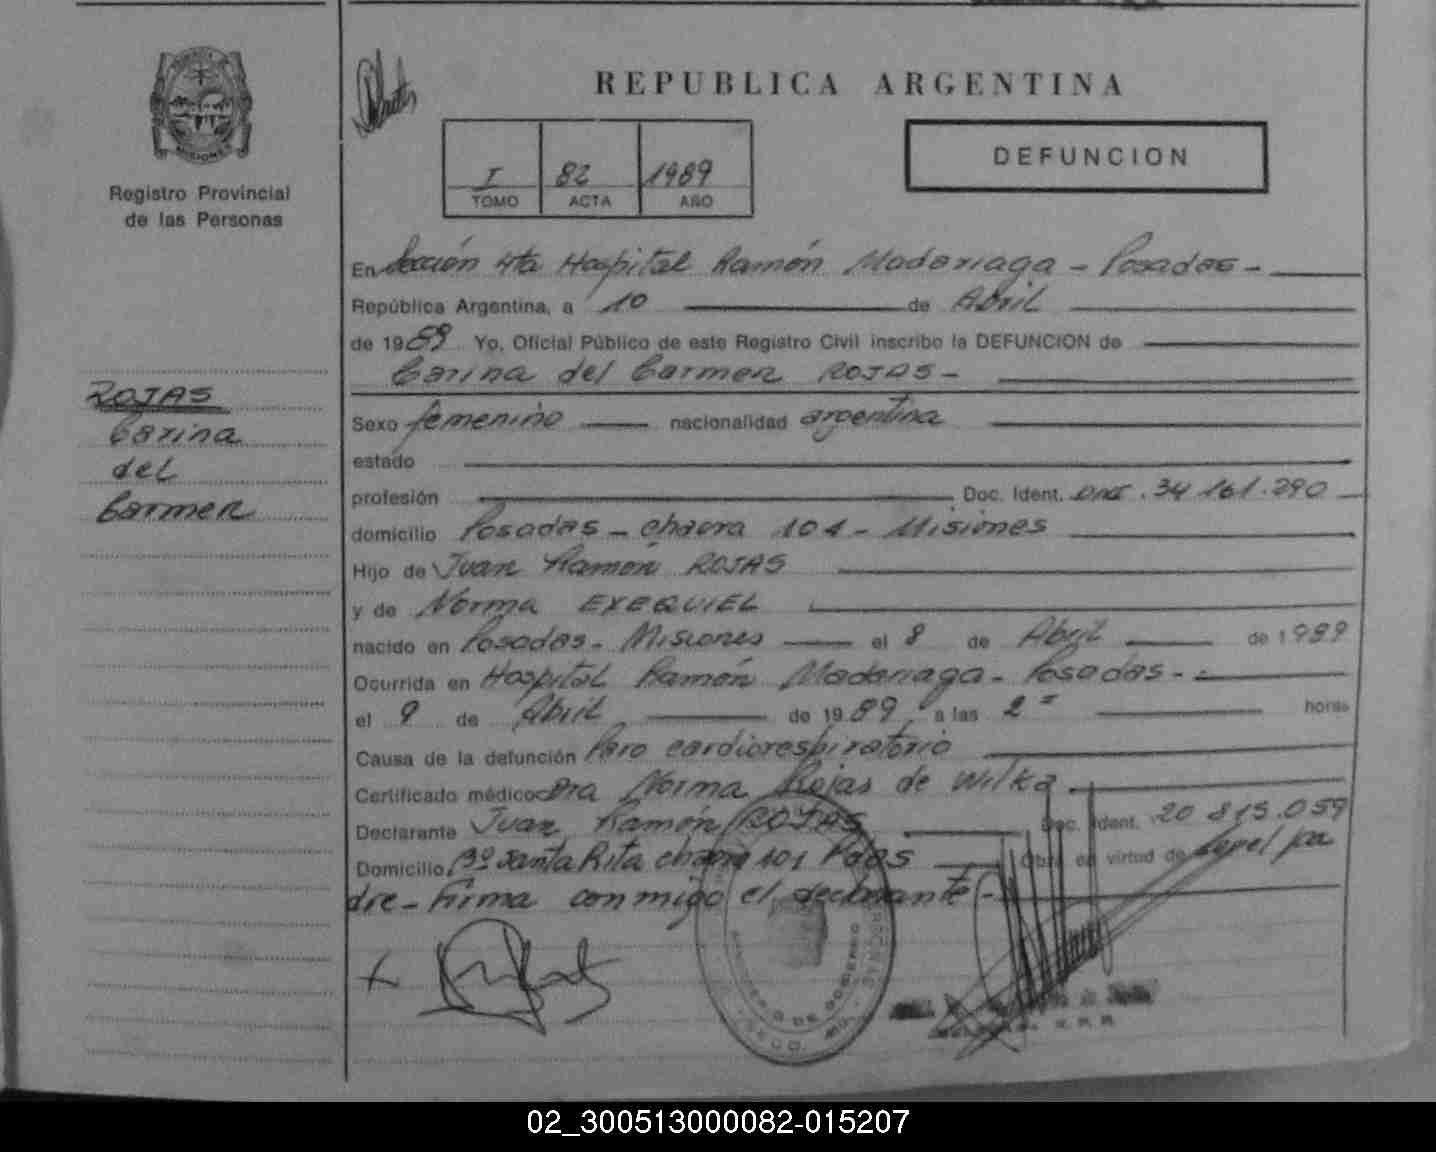 REPUBLICA ARGENTINA
DEFUNCION
I 82 1989
TOMO ACTA AÑO
Registro Provincial
de las Personas
ROJAS
Carina
del
Carmen
En Sección 4ta Hospital Ramón Madariaga - Posadas -
República Argentina, a 10 de Abril
de 1989 Yo, Oficial Público de este Registro Civil inscribo la DEFUNCION de
Carina del Carmen ROJAS -
Sexo femenino nacionalidad argentina
estado
profesión Doc. Ident. DNI. 34.161.290
domicilio Posadas - chacra 101 - Misiones
Hijo de Juan Ramón ROJAS
y de Norma EXEQUIEL
nacido en Posadas - Misiones el 8 de Abril de 1989
Ocurrida en Hospital Ramón Madariaga - Posadas -
el 9 de Abril de 1989, a las 2 horas
Causa de la defunción Paro cardiorespiratorio
Certificado médico Dra Norma Rojas de Wilka
Declarante Juan Ramón ROJAS Doc. Ident. 20.815.059
Domicilio Bº Santa Rita chacra 101 Pdas Obra en virtud de papel pa
dre - Firma conmigo el declarante -
MINISTERIO DE GOBIERNO
02_300513000082-015207